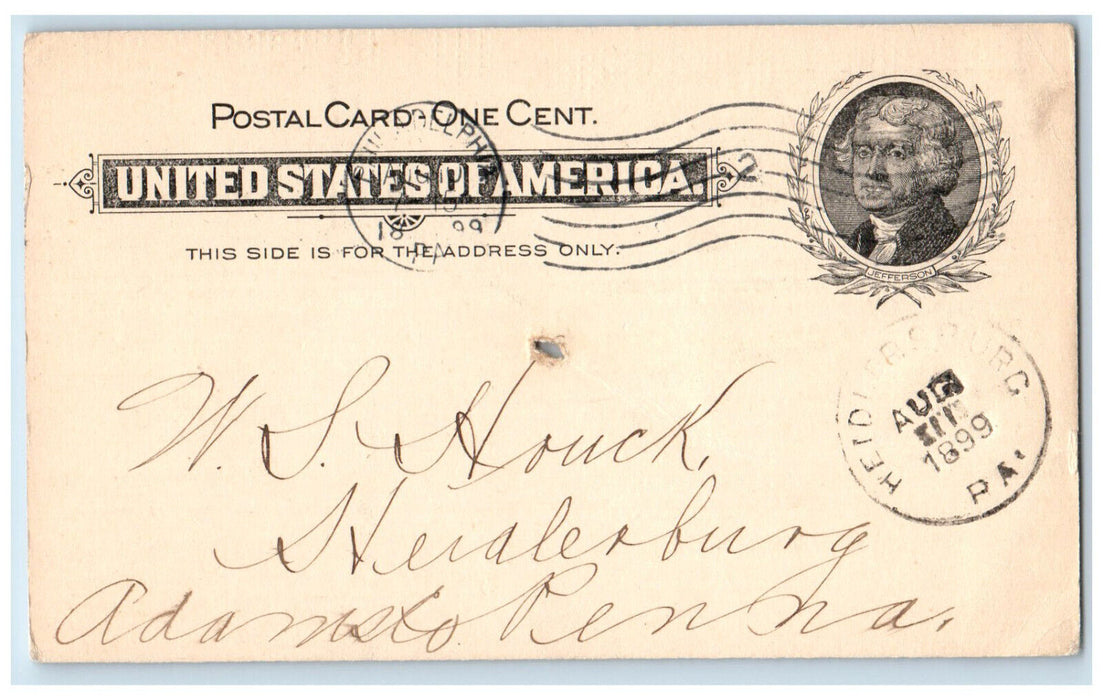 POSTAL CARD-ONE CENT.
UNITED STATES OF AMERICA.
THIS SIDE IS FOR THE ADDRESS ONLY.
PHILADELPHIA
1899
PA
JEFFERSON
HEIDLERSBURG
AUG
1899
PA.
W. S. Houck,
Heidlerburg
Adams Co Penna.